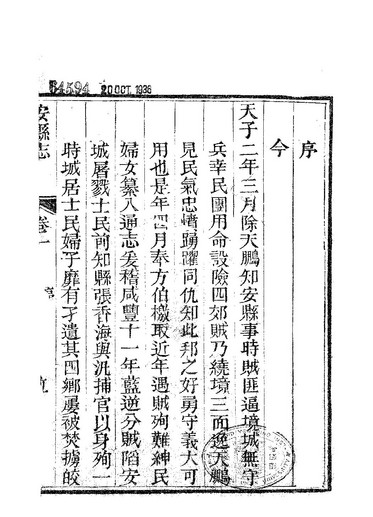 64594 20 OCT. 1936
序
今
天子二年三月除天鵬知安縣事時賊匪逼境城無守
兵幸民團用命設險四郊賊乃繞境三面逸天鵬
見民氣忠憤踴躍同仇知此邦之好勇守義大可
用也是年四月奉方伯檄取近年遇賊殉難紳民
婦女纂入通志爰稽咸豐十一年藍逆分賊陷安
城屠戮士民前知縣張香海與汛捕官以身殉一
時城居士民婦子靡有孑遺其四鄉屢被焚擄皎
安縣志 卷一 序